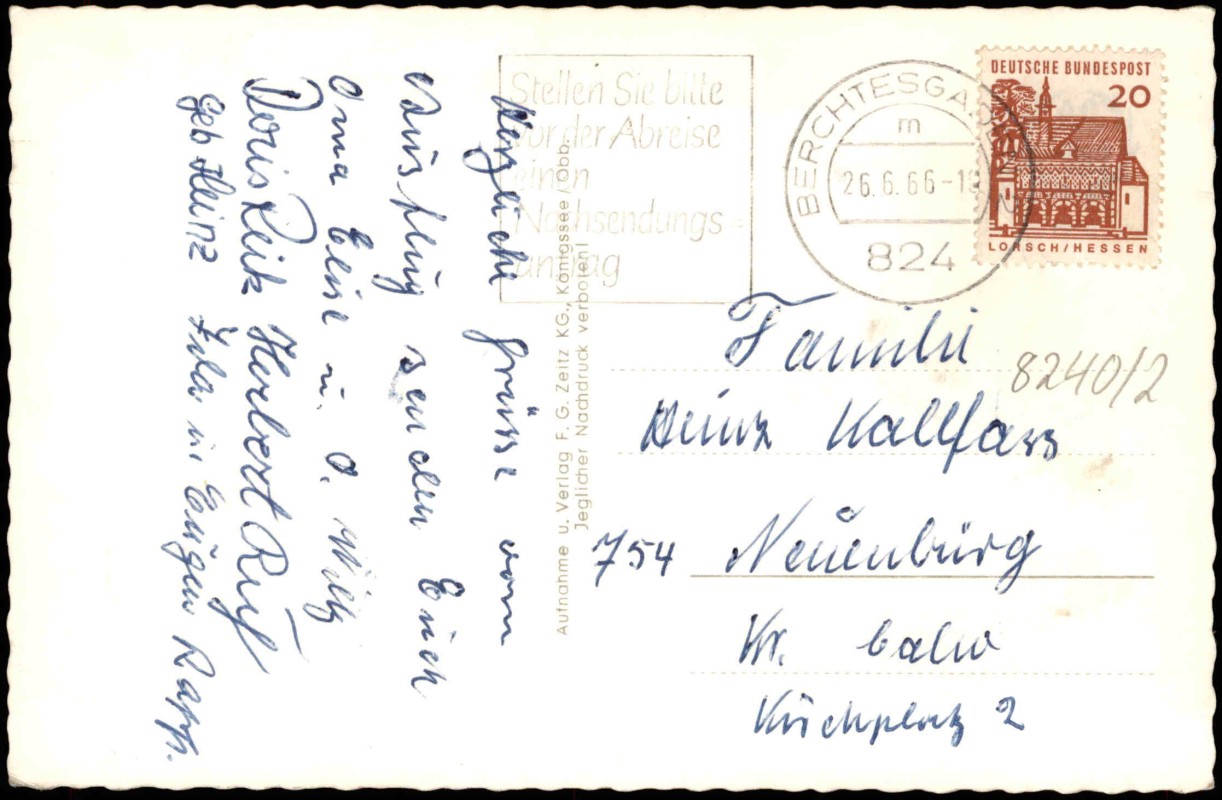 Herzliche Grüsse vom
Ausflug senden Euch
Oma Elise u. O. Willy
Doris Reik Herbert Ruf
Geb Heinz Fela u Eugen Rapp.
Stellen Sie bitte
vor der Abreise
einen
Nachsendungs-
antrag
BERCHTESGADEN
m
26.6.66-18
824
DEUTSCHE BUNDESPOST
20
LORSCH/HESSEN
Aufnahme u. Verlag F. G. Zeitz KG., Königssee/Obb.
Jeglicher Nachdruck verboten!
Familie
8240/2
Heinz Kallfass
754 Neuenbürg
Kr. Calw
Kirchplatz 2